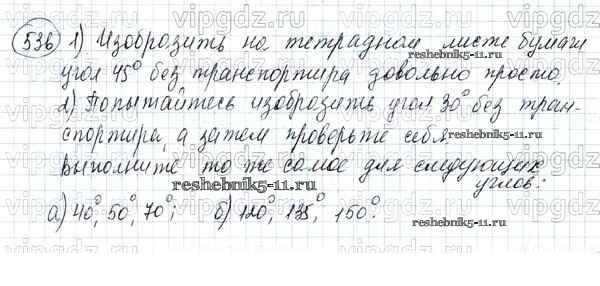 536 1) Изобразить на тетрадном листе бумаги
угол 45° без транспортира довольно просто.
2) Попытайтесь изобразить угол 30° без тран-
спортира, а затем проверьте себя.
Выполните то же самое для следующих
углов:
а) 40°, 50°, 70°; б) 120°, 135°, 150°.
vipgdz.ru
reshebnik5-11.ru
reshebnik5-11.ru
reshebnik5-11.ru
reshebnik5-11.ru